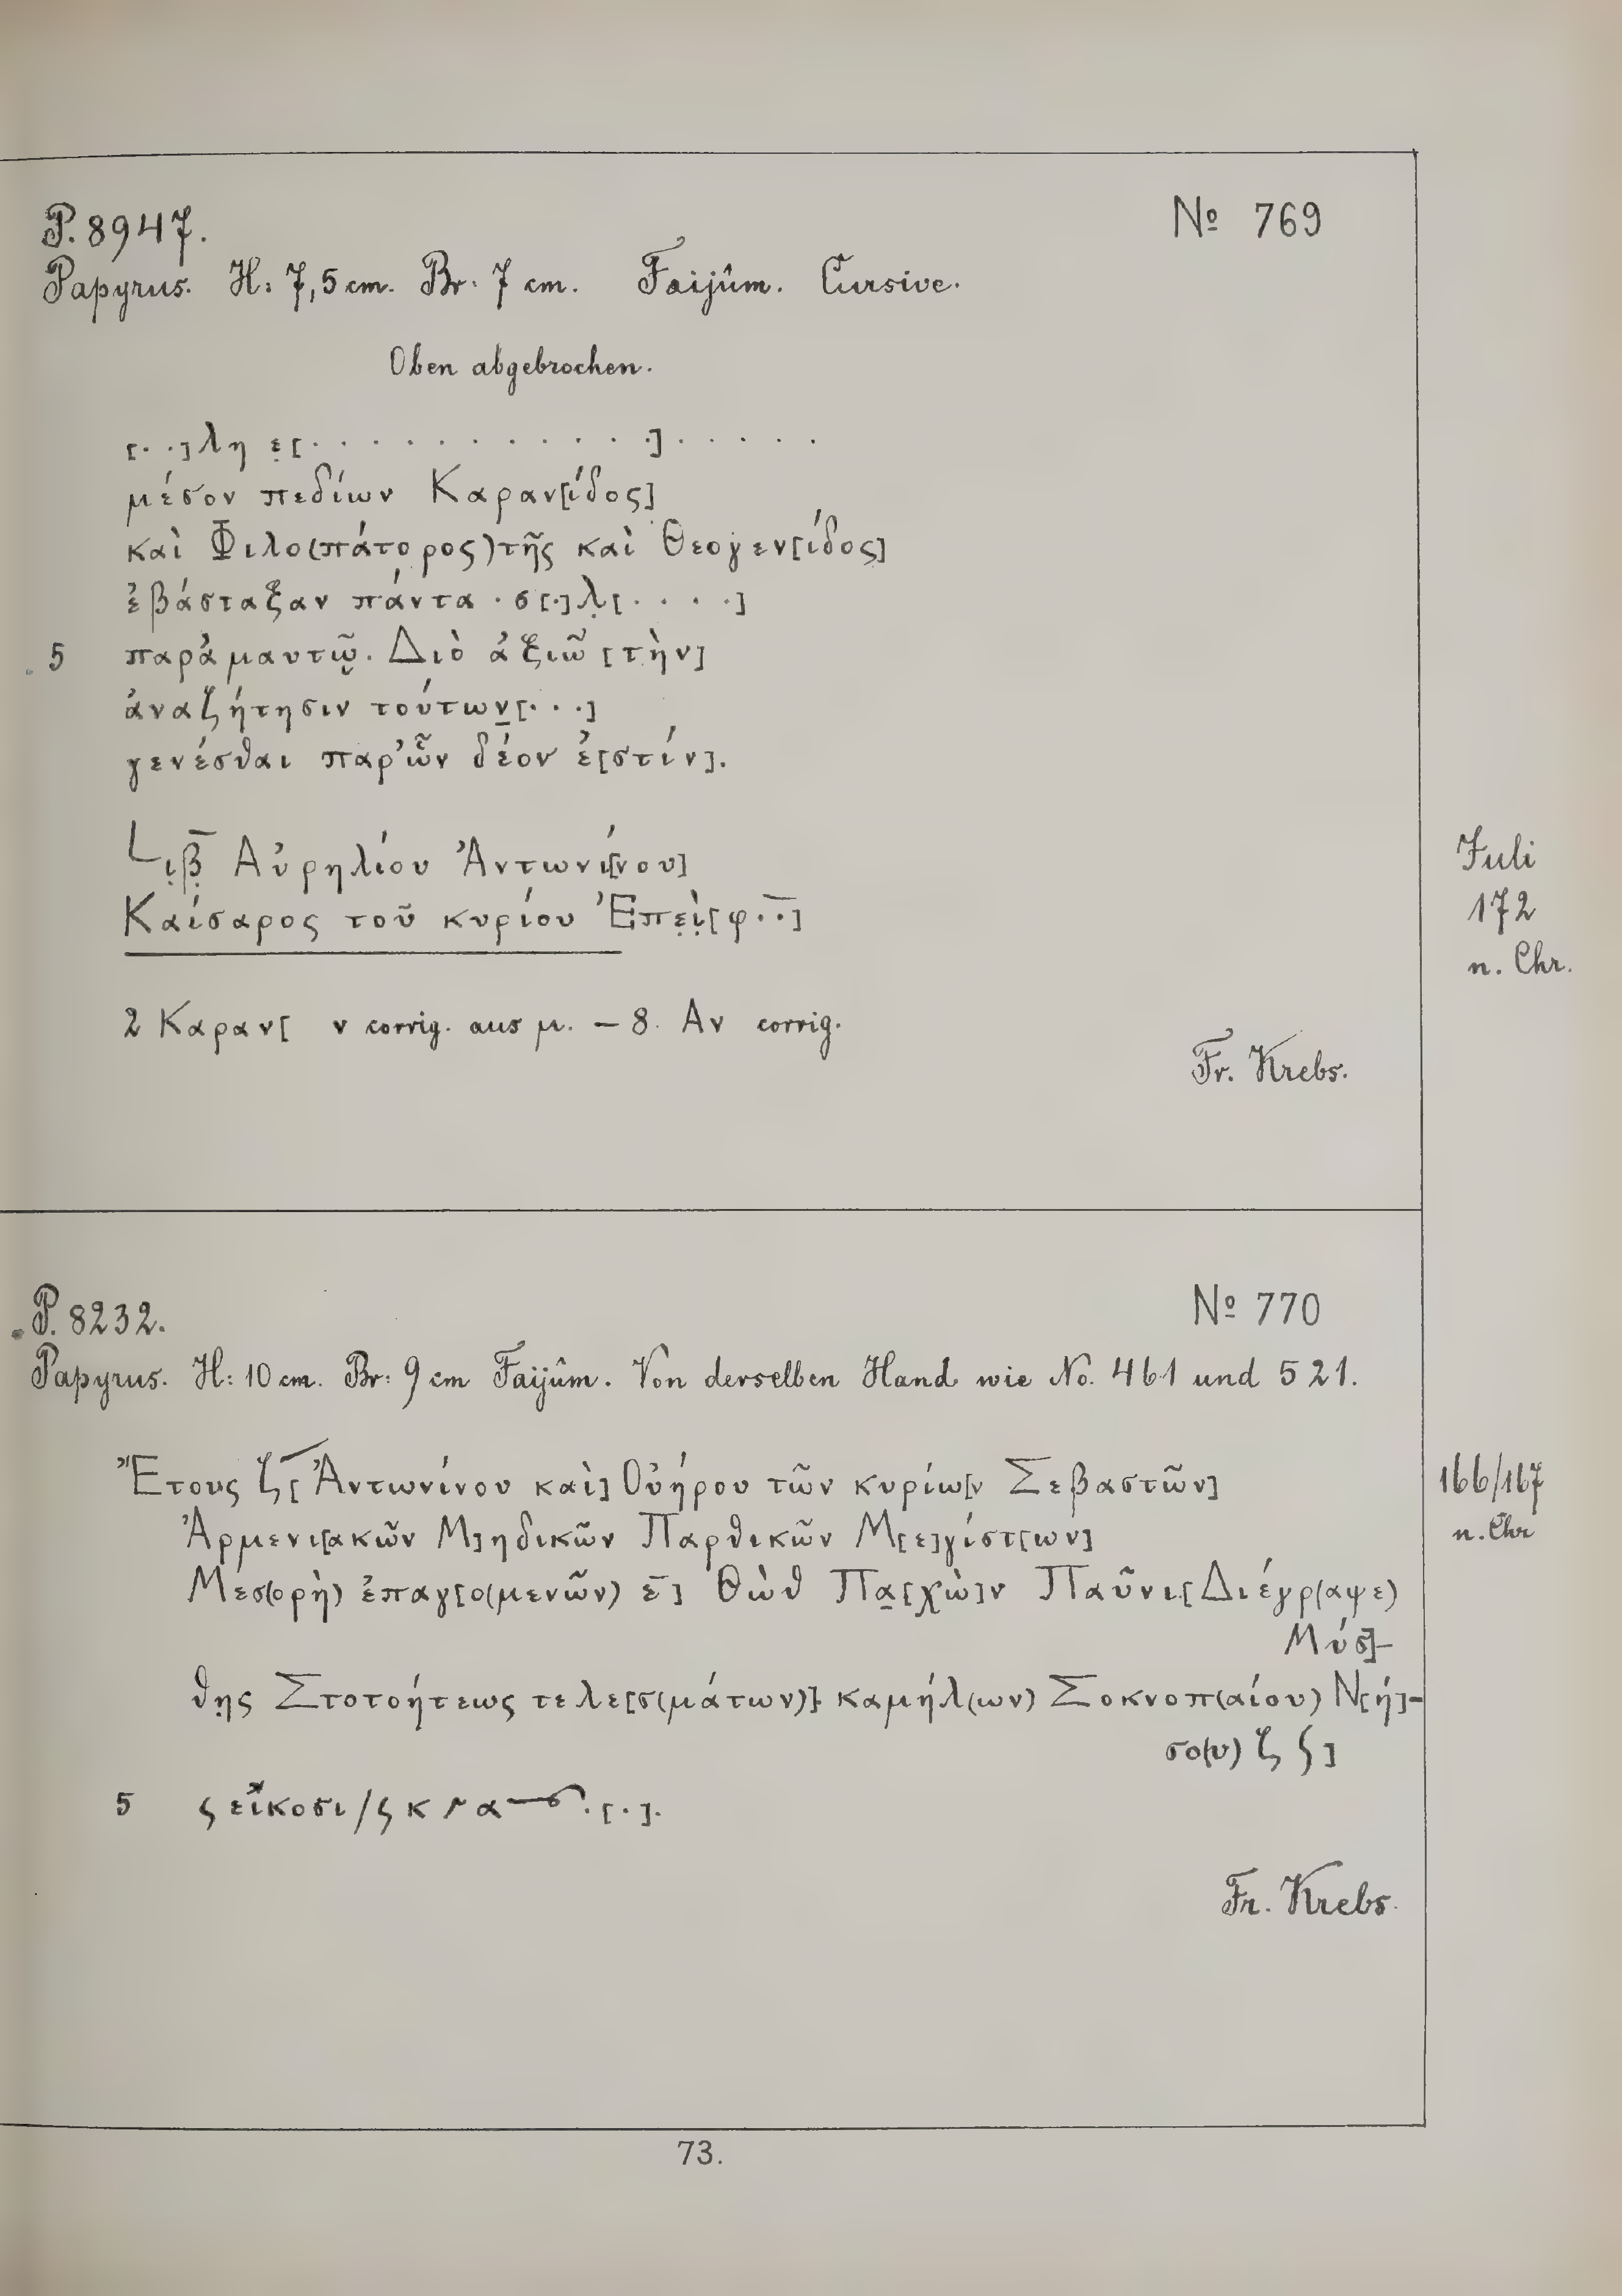 P. 8947. № 769
Papyrus. H: 7,5 cm. Br: 7 cm. Faijûm. Cursive.
Oben abgebrochen.
[. .]λη ε̣[. . . . . . . . . . .] . . . . .
μέσον πεδίων Καραν[ίδος]
καὶ Φιλο(πάτορος) τῆς καὶ Θεογεν[ίδος]
ἐβάσταξαν πάντα . σ[.]λ̣[. . . .]
5 παρ' ἀμαυτῷ. Διὸ ἀξιῶ [τὴν]
ἀναζήτησιν τούτων̣[. . .]
γενέσθαι παρ' ὧν δέον ἐ[στίν].
Lι̣β̣̅ Αὐρηλίου Ἀντωνί[νου]
Καίσαρος τοῦ κυρίου Ἐπε̣ὶ̣[φ . .]
Juli
172
n. Chr.
2 Καραν[ ν corrig. aus μ. – 8. Αν corrig.
Fr. Krebs.
P. 8232. № 770
Papyrus. H: 10 cm. Br: 9 cm Faijûm. Von derselben Hand wie No. 461 und 521.
Ἔτους ζ̅ [Ἀντωνίνου καὶ] Οὐήρου τῶν κυρίω[ν Σεβαστῶν]
166/167
n. Chr
Ἀρμενι[ακῶν Μ]ηδικῶν Παρθικῶν Μ[ε]γίστ[ων]
Μεσ(ορὴ) ἐπαγ[ο(μενῶν) ε̅] Θὼθ Πα̣[χὼ]ν Παῦνι [Διέγρ(αψε)
Μύσ]-
θη̣ς Στοτοήτεως τελε[σ(μάτων)] καμήλ(ων) Σοκνοπ(αίου) Ν[ή]-
σο(υ) ζ ʃ ]
5 ϛ εἴκοσι / ϛ κ 𐅵 α . [.].
Fr. Krebs.
73.